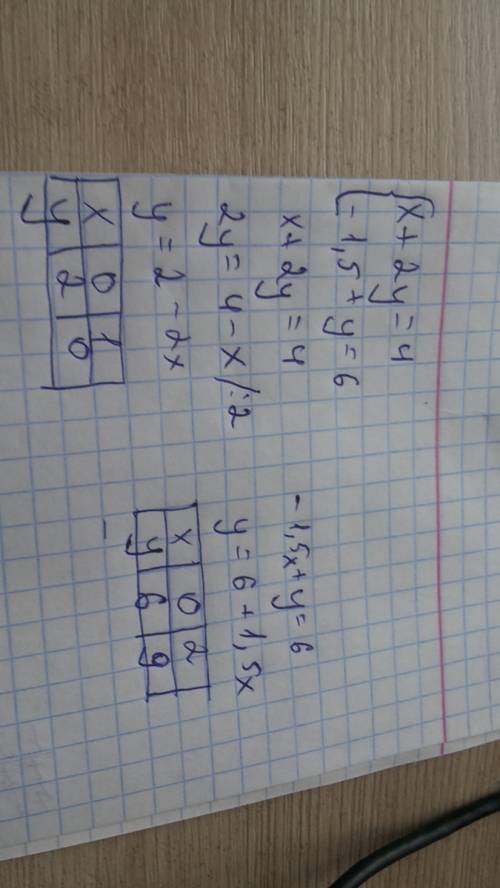 { x + 2y = 4
- 1,5 + y = 6
x + 2y = 4
2y = 4 - x /:2
y = 2 - 2x
x 0 1
y 2 0
- 1,5x + y = 6
y = 6 + 1,5x
x 0 2
y 6 9